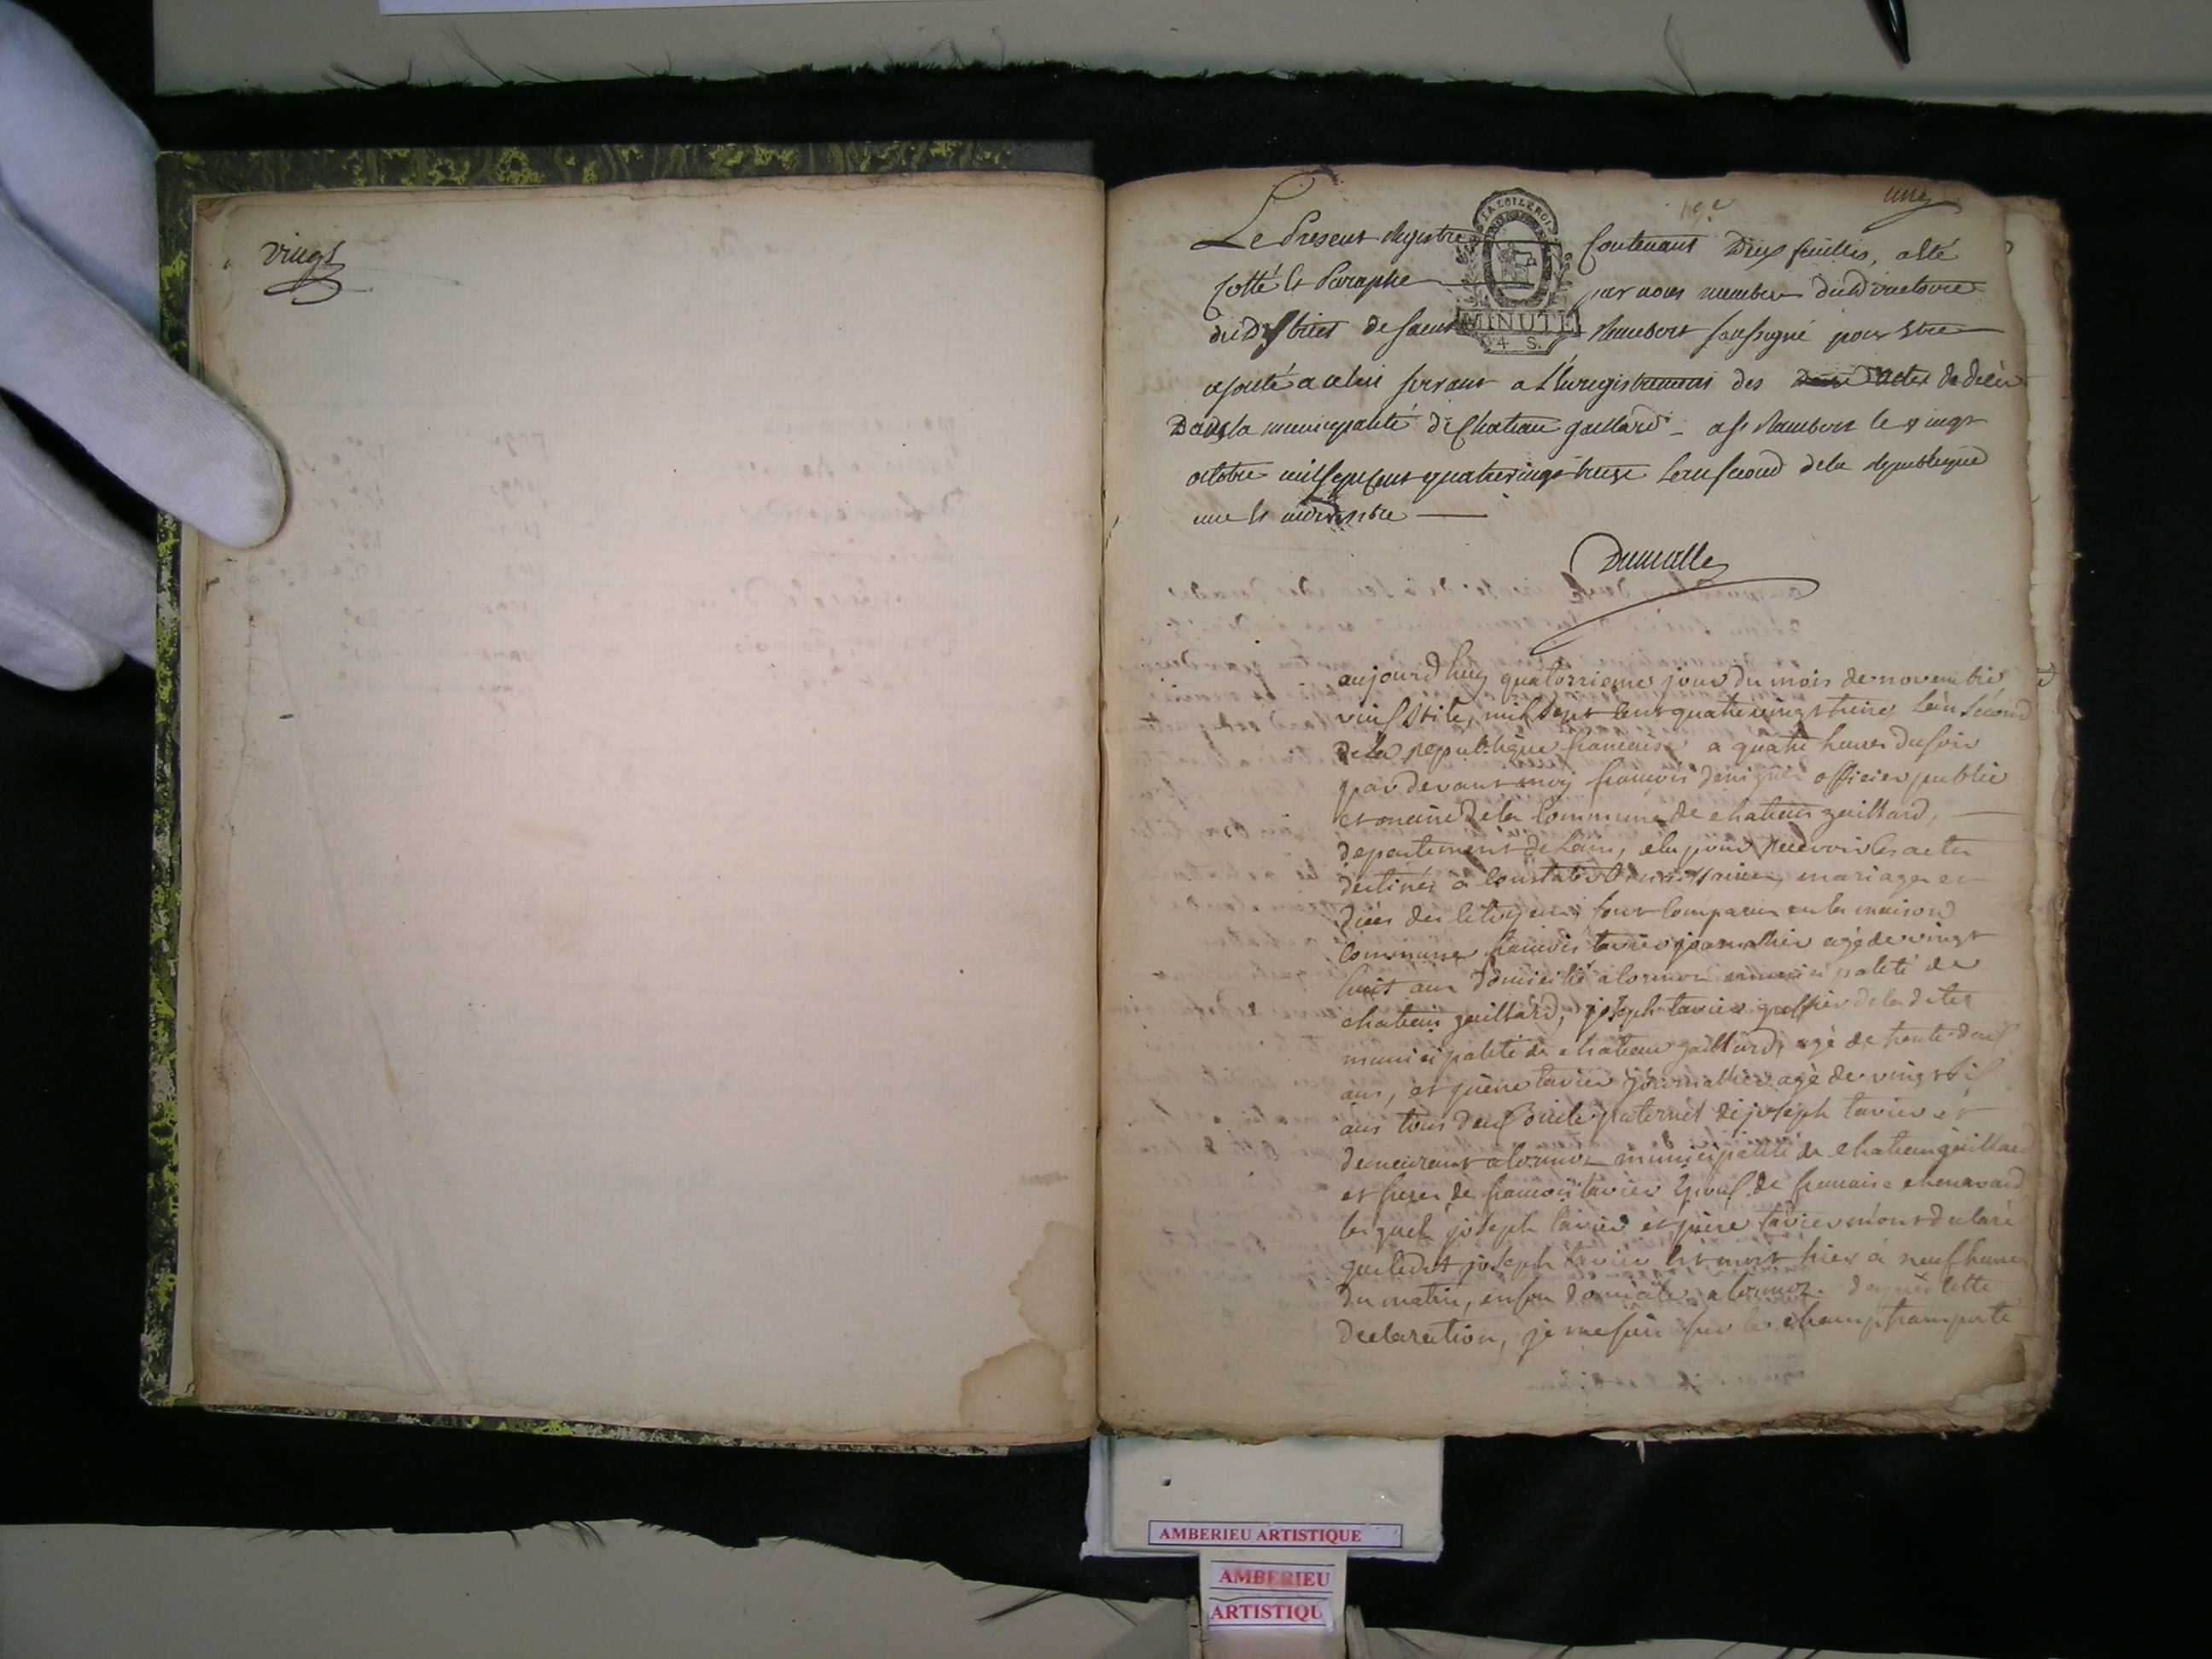 vingt
une
Le Présent Registre Contenant Dix feuillets, a été
LA LOI LE ROI
Cotté et Paraphé par nous membre du Directoire
du District de Saint Rambert soussigné pour être
MINUTE
4 S.
ajouté a celui servant a l'Enregistrement des Actes de décès
Dans la municipalité de Chateau gaillard - a St Rambert le vingt
octobre mil sept cent quatre vingt treize l'an second de la republique
une et indivisible
aujourd'huy quatorzieme jour du mois de novembre
vieux stile, mil sept cent quatre vingt treize l'an second
de la republique francaise a quatre heures du soir
par devant moy francois officier public
et maire de la Commune de chateau gaillard,
departement de Lain, elu pour recevoir les actes
destinés a Constater les naissances, mariages et
décès des citoyens, sont Comparus en la maison
Commune francois tavier journallier agé de vingt
huit ans domicilié a municipalité de
chateau gaillard, joseph tavier greffier de la dite
municipalité de chateau gaillard, agé de trente deux
ans, et pierre tavier journallier agé de vingt six
ans tous deux oncle paternel de joseph tavier et
demeurant a municipalité de chateau gaillard
et freres de francois tavier Epoux de francaise chenavard
lesquels joseph tavier et pierre tavier m'ont declaré
que ledit joseph tavier est mort hier à neuf heures
du matin, en son domicile a d'après cette
declaration, je me suis sur le champ transporté
AMBERIEU ARTISTIQUE
AMBERIEU
ARTISTIQU